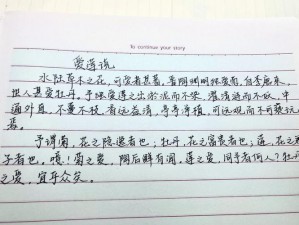 To continue your story
爱莲说
水陆草木之花,可爱者甚蕃。晋陶渊明独爱菊,自李唐来,
世人甚爱牡丹,予独爱莲之出淤泥而不染,濯清涟而不妖,中
通外直,不蔓不枝,香远益清,亭亭净植,可远观而不可亵玩
焉。
予谓菊,花之隐逸者也;牡丹,花之富贵者也;莲,花之君
子者也。噫!菊之爱,陶后鲜有闻,莲之爱,同予者何人?牡丹
之爱,宜乎众矣。